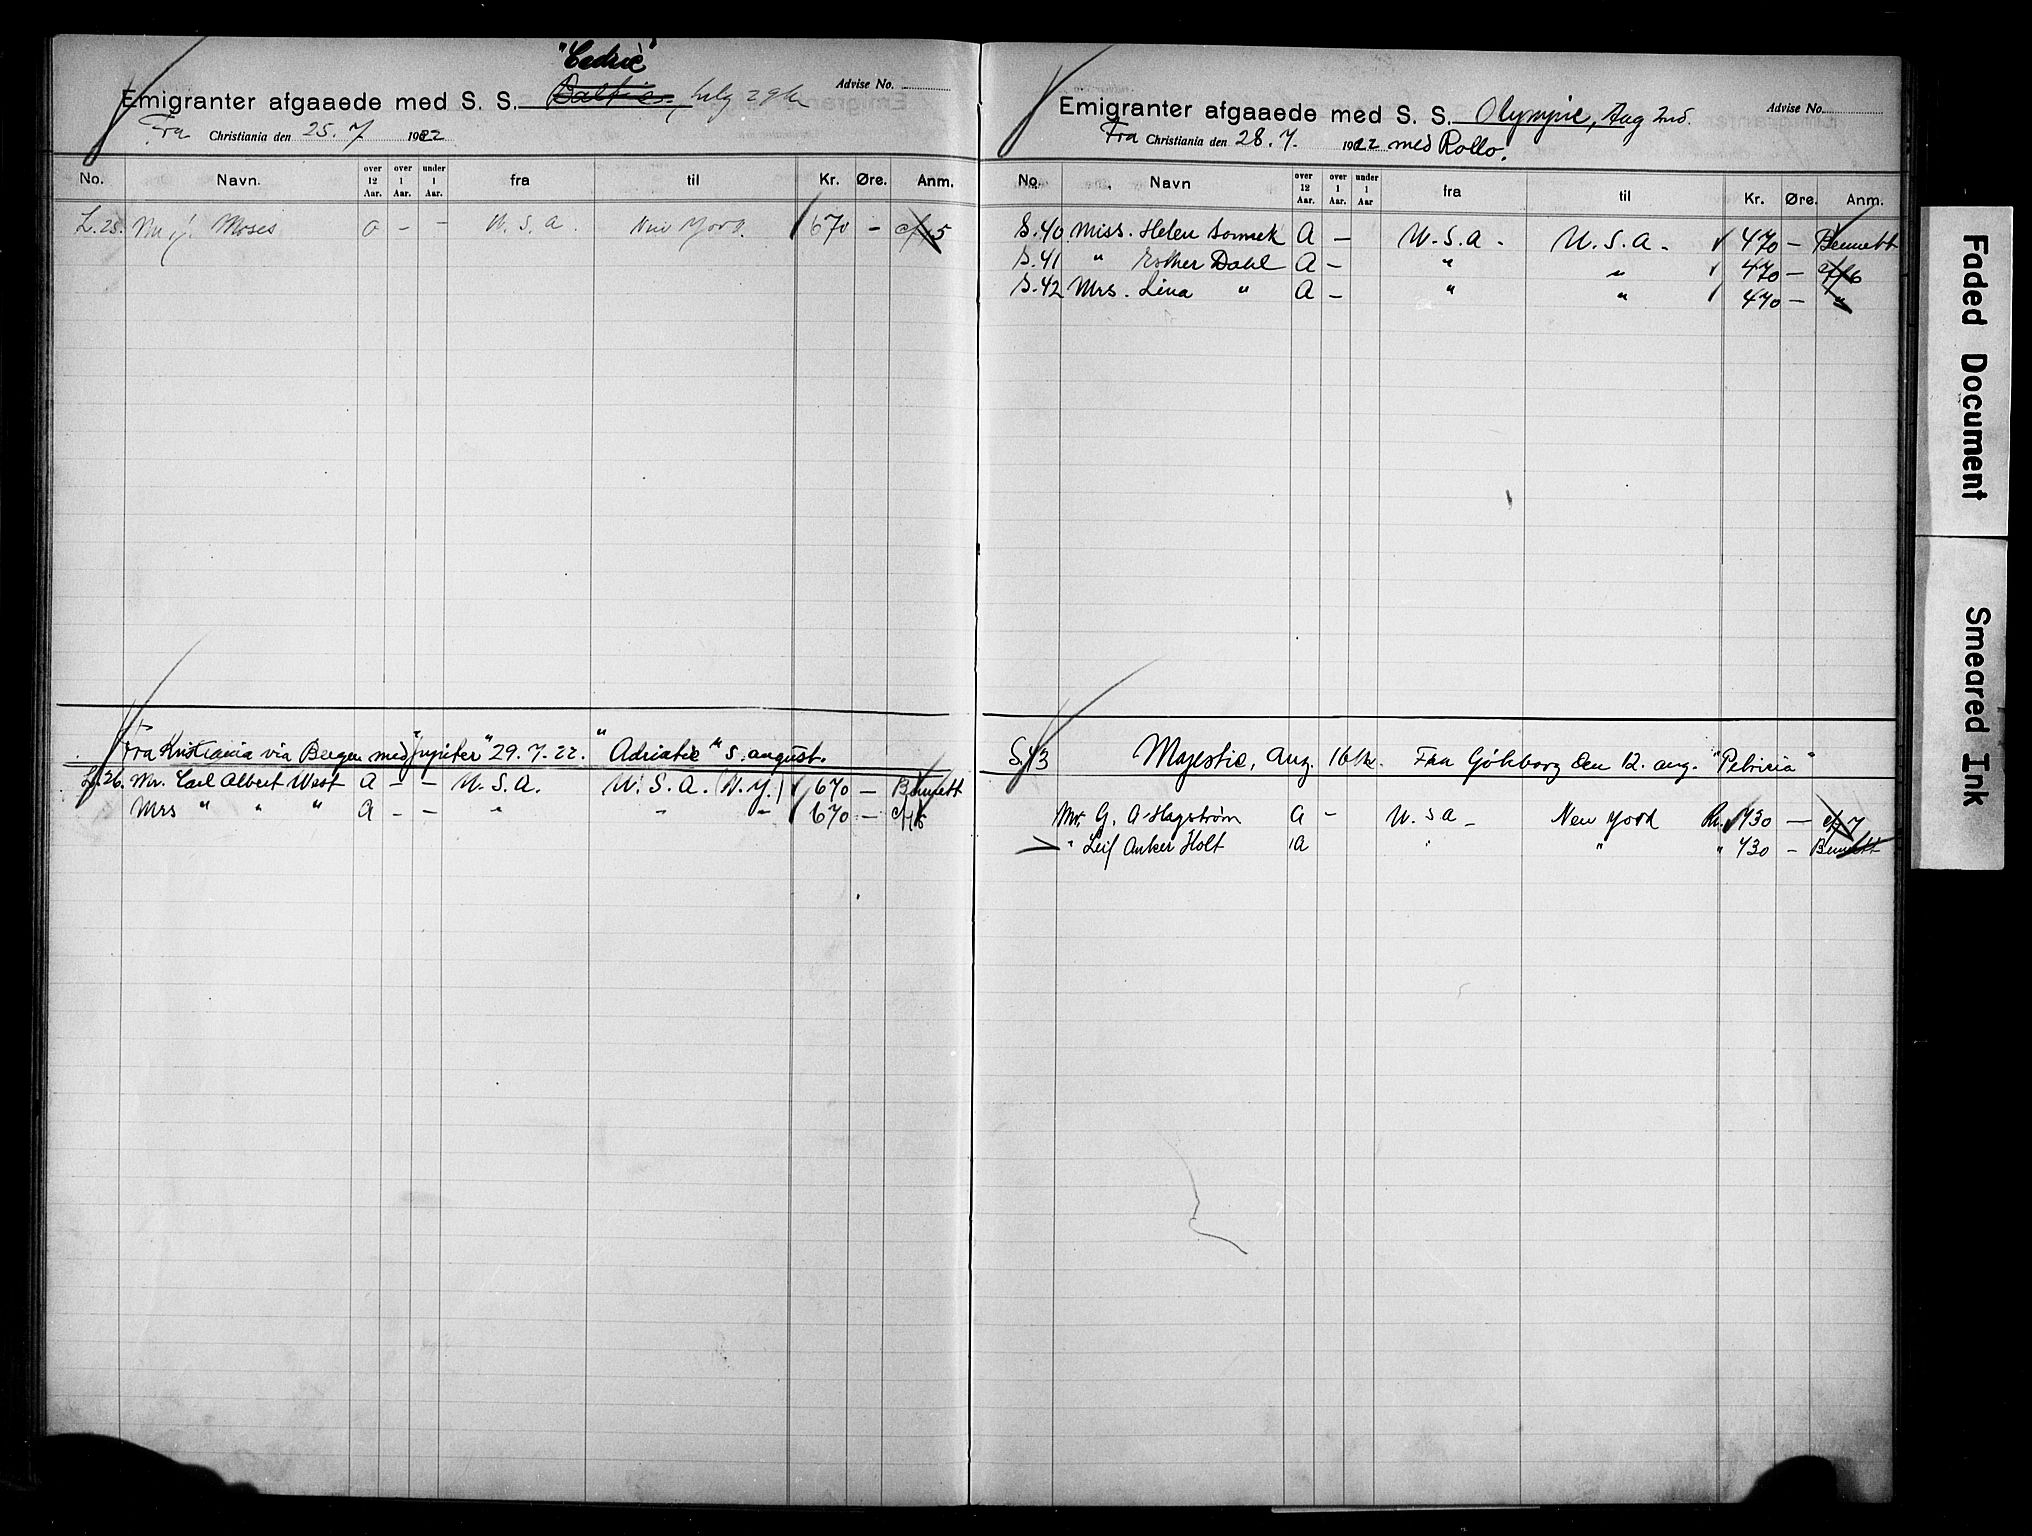 "Cedric"
Emigranter afgaaede med S. S. Baltic, July 29th Advise No.
Fra Christiania den 25. 7 1922
No. Navn. over 12 Aar. over 1 Aar. under 1 Aar. fra til Kr. Øre. Anm.
L.25. Moses a – – U. S. A. New York. 670 – c/15
Fra Kristiania via Bergen med "Jupiter" 29. 7. 22. "Adriatic" 5. august.
L.26. Mr. Carl Albert West A – – U. S. A. U. S. A. (N. Y.) 670 – Bennett
Mrs " " " A – – " " " 670 –
Emigranter afgaaede med S. S. Olympic, Aug 2nd. Advise No.
Fra Christiania den 28. 7. 1922 med Rollo.
No. Navn over 12 Aar. over 1 Aar. under 1 Aar fra til Kr. Øre. Anm.
S.40 Miss. Helen A – U. S. A. U. S. A. 470 – Bennett
S.41 " Esther Dahl A – " " 470 –
S.42 Mrs. Lina " A – " " 470 – "
S.43 Majestic, Aug. 16th. Fra Göteborg den 12. aug. "Patricia"
Mr. G. A. Hagstrøm A – U. S A – New York Kr. 430 –
" Leif Anker Holt A " " " 430 – Bennett
Faded Document
Smeared Ink